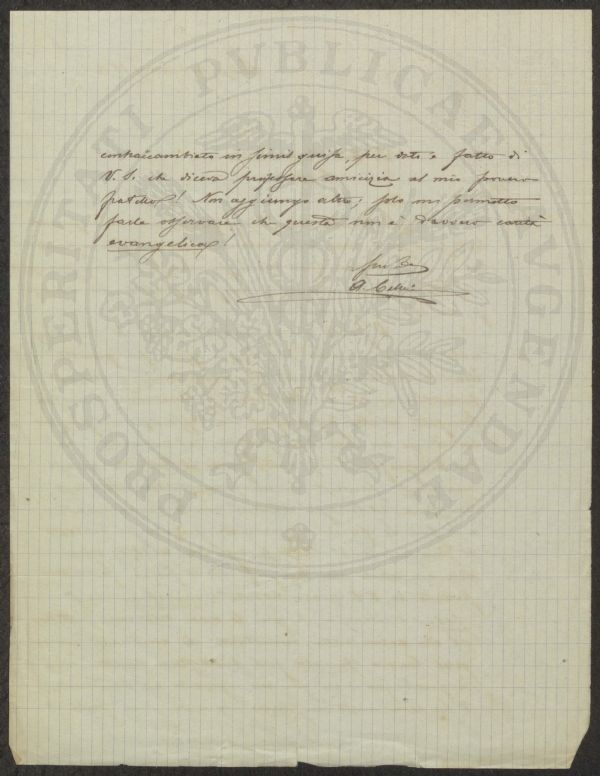 contraccambiato in simil guisa, per dato e fatto di
V. S. che diceva professare amicizia al mio povero
fratello! Non aggiungo altro; solo mi permetto
farle osservare che questa non è davvero carità
evangelica!
PROSPERITATI PVBLICAE AVGENDAE